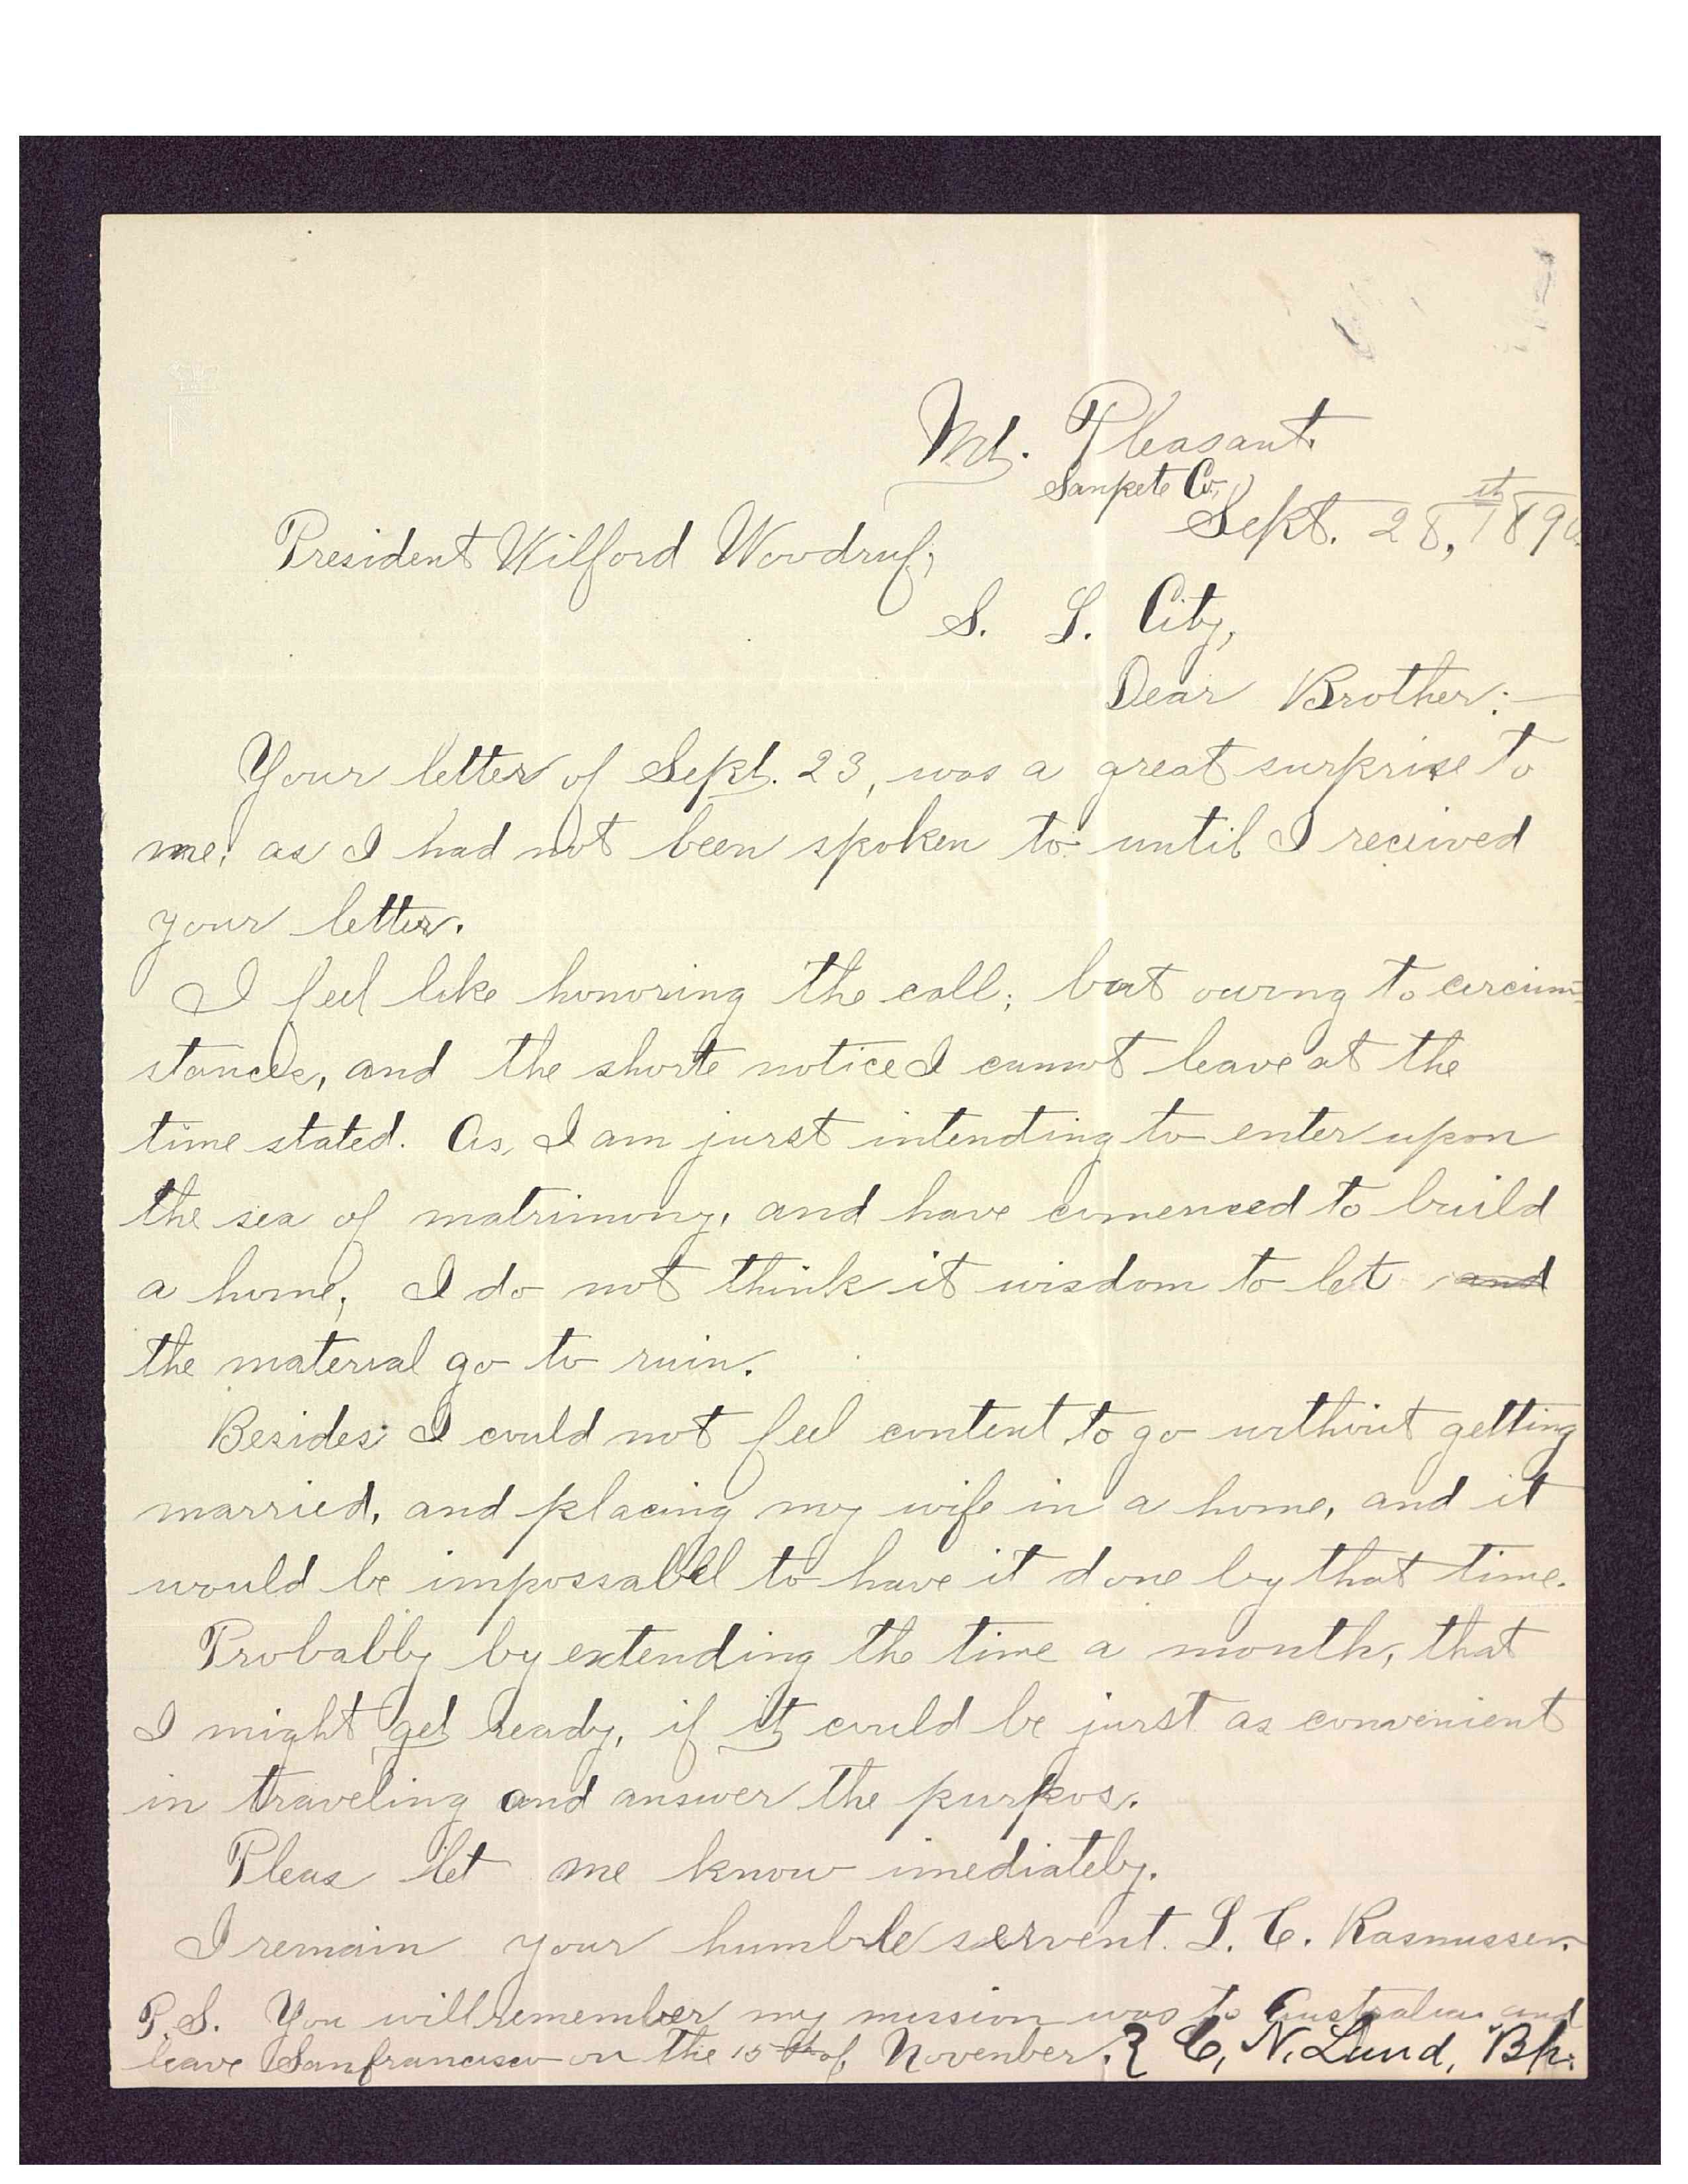 Mt. Pleasant.
Sanpete Co,
Sept. 28, th 1890.
President Wilford Woodruf;
S. L. City,
Dear Brother:—
Your letter of Sept. 23, was a great surprise to
me; as I had not been spoken to until I received
your letter.
I feel like honoring the call; but owing to circum=
stances, and the shorte notice I cannot leave at the
time stated. As, I am jurst intending to enter upon
the sea of matrimony, and have comenced to build
a home, I do not think it wisdom to let and
the material go to ruin.
Besides: I could not feel content, to go without getting
married, and placing my wife in a home, and it
would be impossabel to have it done by that time.
Probably by extending the time a month, that
I might get ready, if it could be jurst as convenient
in traveling and answer the purpos.
Pleas let me know imediately.
I remain your humble servent. L. C. Rasmussen.
P.S. You will remember my mission was to Australia and
leave Sanfrancisco on the 15th of November. C, N. Lund, Bp.